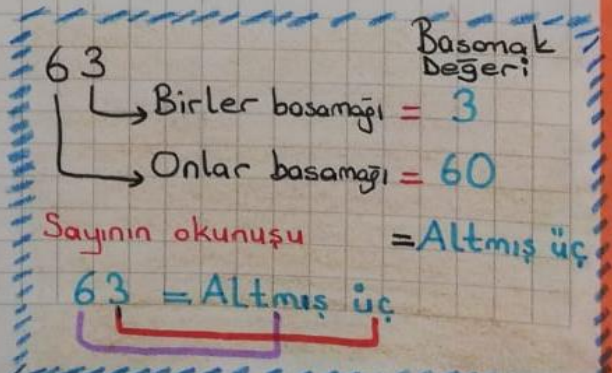 Basamak
Değeri
63
Birler basamağı = 3
Onlar basamağı = 60
Sayının okunuşu = Altmış üç
63 = Altmış üç